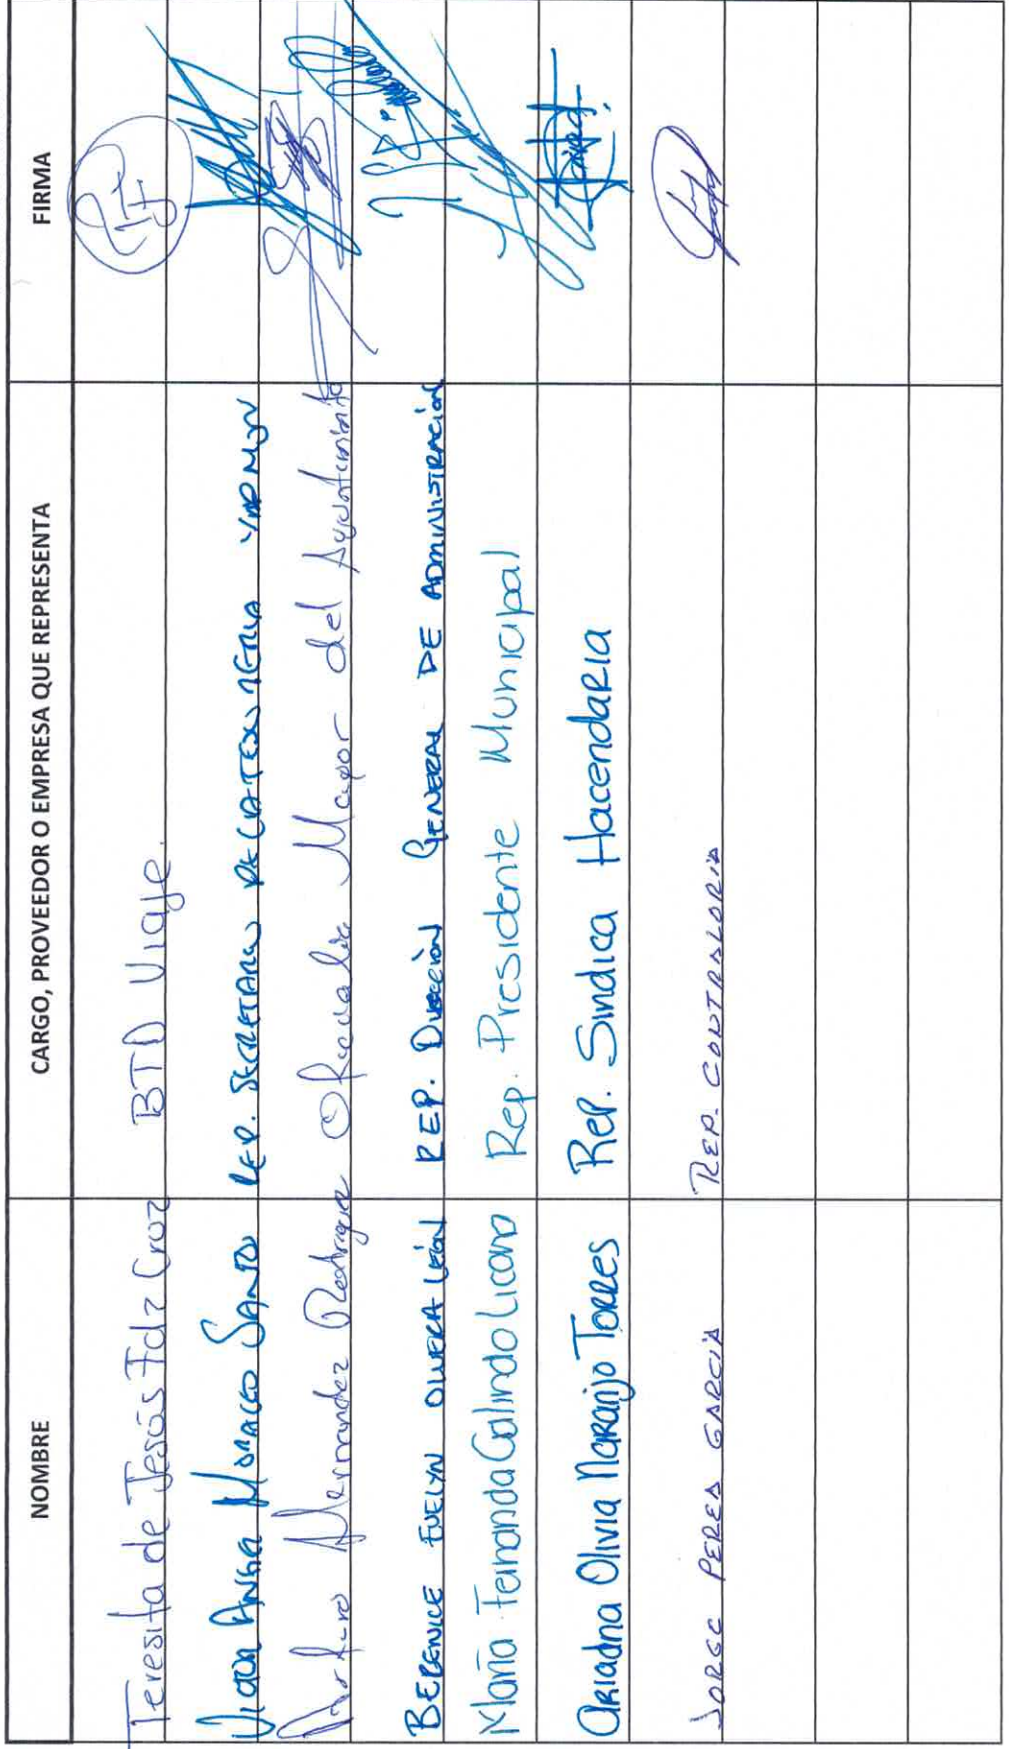 NOMBRE CARGO, PROVEEDOR O EMPRESA QUE REPRESENTA FIRMA
Teresita de Jesús Fdz Cruz BTD Viaje.
Rep. Secretario de la Tesorería
Arturo Hernandez Rodriguez Oficialía Mayor del Ayuntamiento
BERENICE EVELYN OLVERA LEÓN REP. Dirección GENERAL DE ADMINISTRACIÓN
María Fernanda Galindo Licano Rep. Presidente Municipal
Ariadna Olivia Naranjo Torres Rep. Sindica Hacendaria
JORGE PERES GARCIA REP. CONTRALORIA